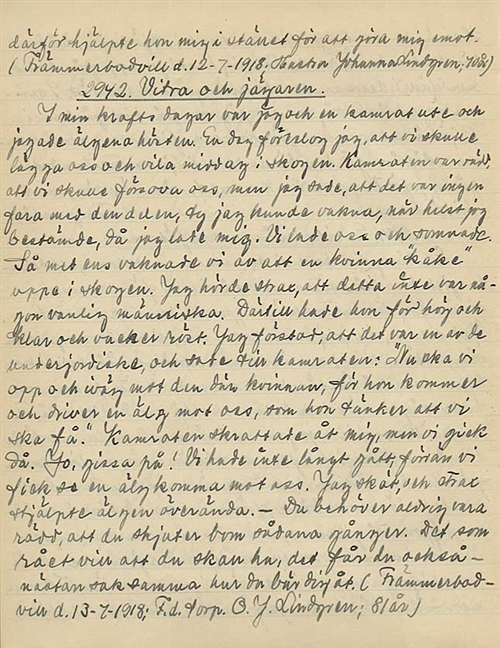 därför hjälpte hon mig i stället för att göra mig emot.
(Främmerbodvill d. 12-7-1918. Hustru Johanna Lindgren; år)
2942. Vitra och jägaren.
I min krafts dagar var jag och en kamrat ute och
jagade älgena hösten. En dag föreslog jag, att vi skulle
lägga oss och vila middag i skogen. Kamraten var rädd,
att vi skulle försova oss, men jag sade, att det var ingen
fara med den delen, ty jag kunde vakna, när helst jag
bestämde, då jag lade mig. Vi lade oss och somnade.
Så med ens vaknade vi av att en kvinna "kåke"
uppe i skogen. Jag hörde strax, att detta inte var nå-
gon vanlig människa. Därtill hade hon för hög och
klar och vacker röst. Jag förstod, att det var en av de
underjordiske, och sade till kamraten: "Nu ska vi
opp och iväg mott den där kvinnan, för hon kommer
och driver en älg mot oss, som hon tänker att vi
ska få." Kamraten skrattade åt mig, men vi gick
då. Jo, gissa på! Vi hade inte långt gått, förrän vi
fick se en älg komma mot oss. Jag sköt, och strax
stjälpte älgen överända. — Du behöver aldrig vara
rädd, att du skjuter bom sådana gånger. Det som
rået vill att du skan ha, det får du också -
nästan sak samma hur du bär dig åt. (Främmerbod-
vill d. 13-7-1918; F.d. torp. O. J. Lindgren; 81 år)